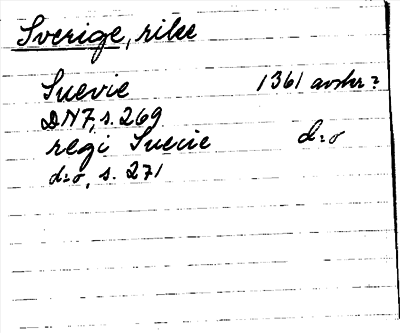 Sverige, rike
Suevie 1361 avskr?
DN7, s. 269
regi Suecie d:o
d:o, s. 271